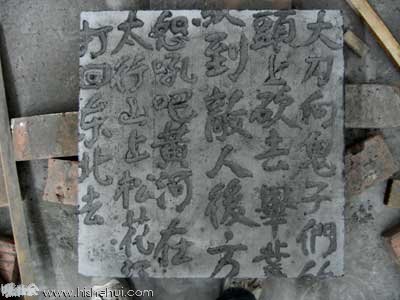 大刀向鬼子們的
頭上砍去畢業
到敵人後方
怒吼吧黃河在
太行山上松花江
打回东北去
www.hishahui.com